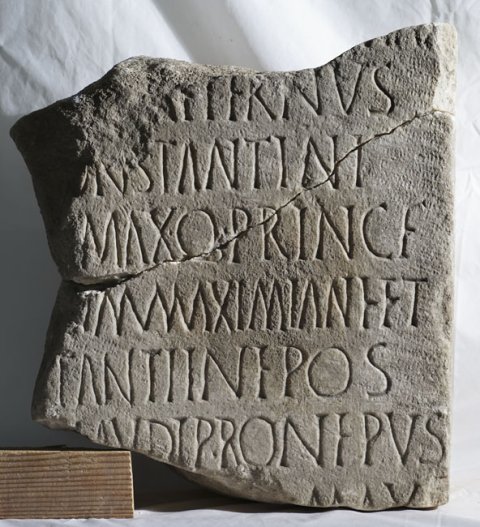 TERNVS
NSTANTINI
MAXQPRINCE
MMAXIMIANIET
TANTIINEPOS
VDIPRONEPVS
MAX